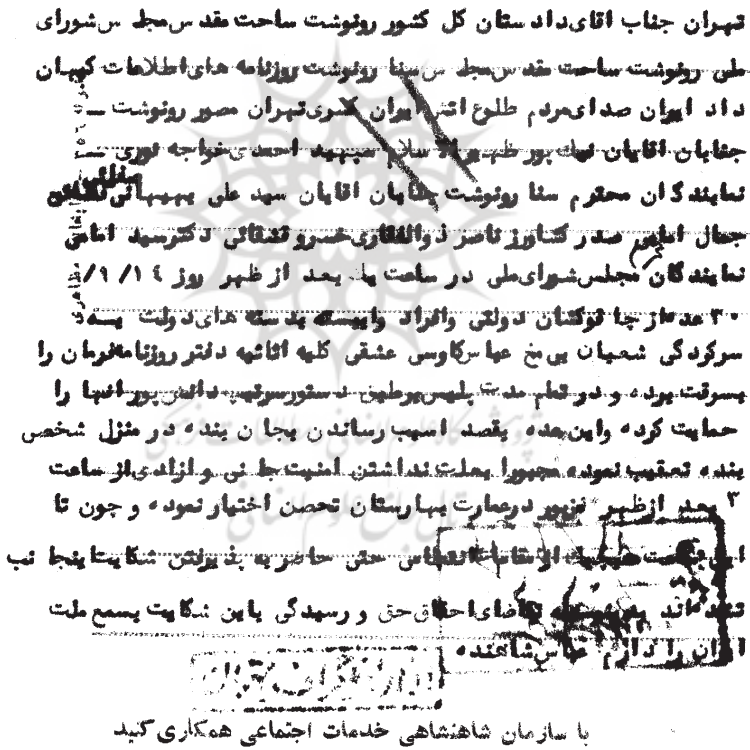 تهران جناب اقای دادستان کل کشور رونوشت ساحت مقدس مجلس شورای
ملی رونوشت ساحت مقدس مجلس سنا رونوشت روزنامه های اطلاعات کیهان
داد ایران صدای مردم طلوع اتش ایران کسری تهران مصور رونوشت
جنابان اقایان نیک پور ظهیرالاسلام سپهبد احمدی خواجه نوری
نمایندگان محترم سنا رونوشت جنابان اقایان سید علی بهبهانی
جمال امامی صدر کشاورز ناصر ذوالفقاری خسرو قشقائی دکتر سید امامی
نمایندگان مجلس شورای ملی در ساعت یک بعد از ظهر روز ۱۴ /۹/
۳۰ عده از چاقوکشان دولتی وافراد وابسته بدسته های دولت بسه
سرکردگی شعبان بی مخ عباس کاوسی عشقی کلیه اثاثیه دفتر روزنامه فرمان را
بسرقت برده و در تمام مدت پلیس برطبق دستور سرتیپ دانش پور انها را
حمایت کرده واین عده بقصد اسیب رساندن بجان بنده در منزل شخصی
بنده تعقیب نموده مجبورا بعلت نداشتن امنیت جانی و ازادی از ساعت
۳ بعد ازظهر مزبور درعمارت بهارستان تحصن اختیار نموده و چون تا
این ساعت هیچیک از مقامات انتظامی حتی حاضر به پذیرفتن شکایت اینجا نب
نشده‌اند تقاضای احقاق حق و رسیدگی باین شکایت بسمع ملت
ایران را دارم عباس شاهنده
با سازمان شاهنشاهی خدمات اجتماعی همکاری کنید